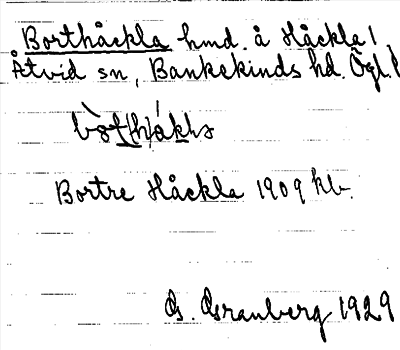 Borthåckla hmd. å Håckla,
Åtvid sn, Bankekinds hd. Ögl.
Bortre Håckla 1909 kb.
G. Granberg 1929